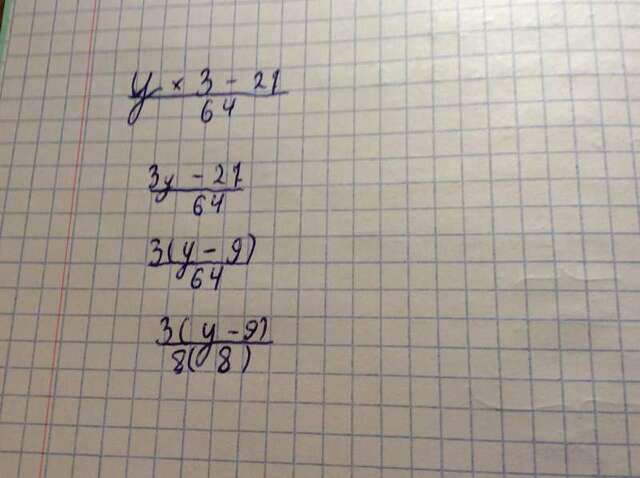 y × 3 - 27
64
3y - 27
64
3(y - 9)
64
3(y - 9)
8(8)